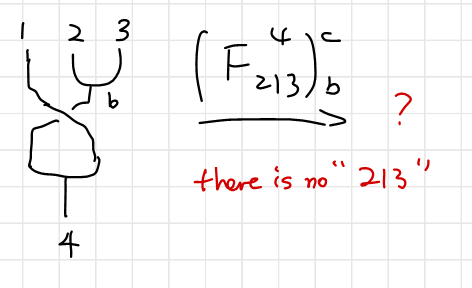 1 2 3
b
4
(F_{213}^{4})_{b}^{c}
?
there is no "213"